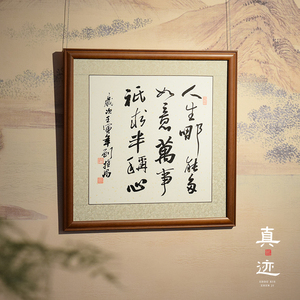 人生哪能多
如意萬事
祇求半稱心
歲次壬寅年劉
真迹